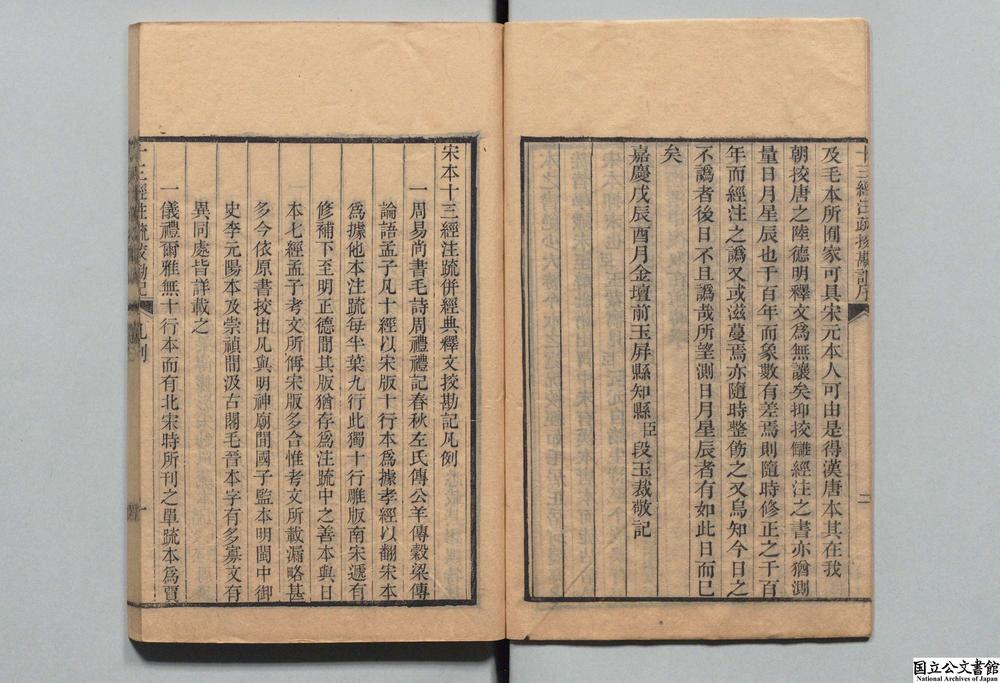 十三經注疏挍勘記序
二
及毛本所囿家可具宋元本人可由是得漢唐本其在我
朝挍唐之陸德明釋文爲無讓矣抑挍讎經注之書亦猶測
量日月星辰也千百年而象數有差焉則隨時修正之千百
年而經注之譌又或滋蔓焉亦隨時整飭之又烏知今日之
不譌者後日不且譌哉所望測日月星辰者有如此日而已
矣
嘉慶戊辰酉月金壇前玉屏縣知縣臣段玉裁敬記
宋本十三經注疏併經典釋文挍勘記凡例
一周易尚書毛詩周禮禮記春秋左氏傳公羊傳穀梁傳
論語孟子凡十經以宋版十行本爲據孝經以翻宋本
爲據他本注疏每半葉九行此獨十行雕版南宋遞有
修補下至明正德間其版猶存爲注疏中之善本與日
本七經孟子考文所偁宋版多合惟考文所載漏略甚
多今依原書挍出凡與明神廟間國子監本明閩中御
史李元陽本及崇禎間汲古閣毛晉本字有多寡文有
異同處皆詳載之
一儀禮爾雅無十行本而有北宋時所刊之單疏本爲賈
十三經注疏挍勘記
凡例
一
国立公文書館
National Archives of Japan